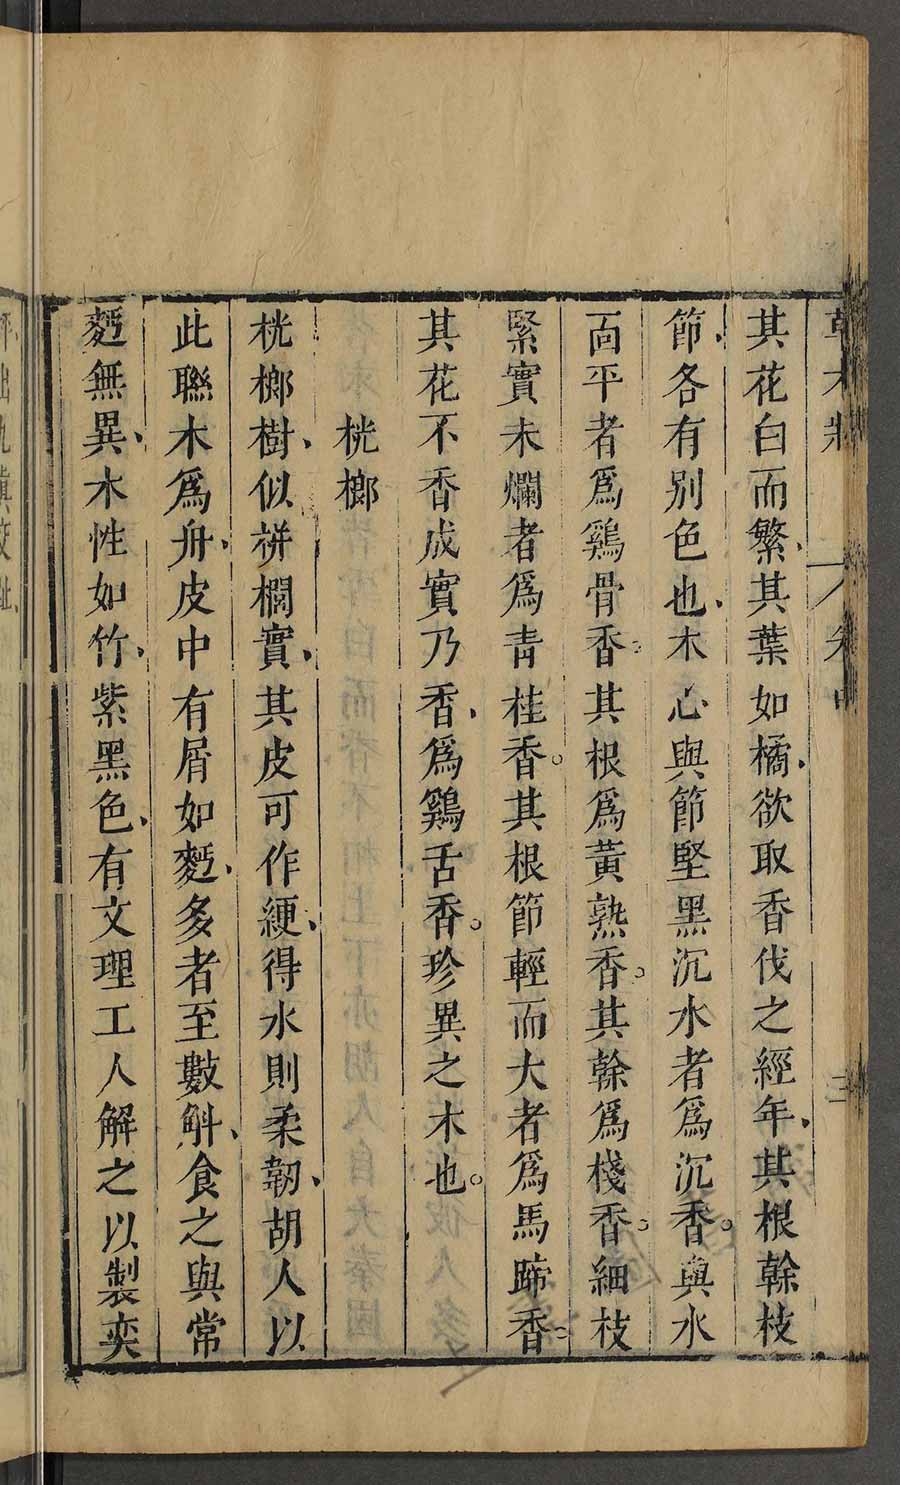 草木狀　卷中　三
其花白而繁、其葉如橘、欲取香伐之經年、其根幹枝
節、各有別色也、木心與節堅黑沉水者爲沉香。與水
面平者爲鷄骨香。其根爲黃熟香。其幹爲棧香。細枝
緊實未爛者爲青桂香。其根節輕而大者爲馬蹄香。
其花不香成實乃香、爲鷄舌香。珍異之木也。
桄榔
桄榔樹、似栟櫚實、其皮可作綆、得水則柔韌、胡人以
此聯木爲舟、皮中有屑如麪、多者至數斛、食之與常
麪無異、木性如竹、紫黑色、有文理工人解之以製奕